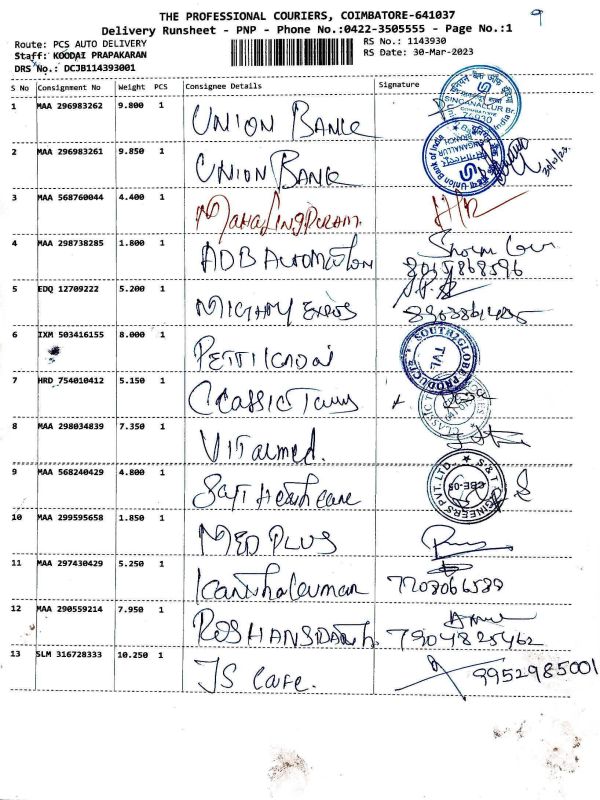 THE PROFESSIONAL COURIERS, COIMBATORE-641037
9
Delivery Runsheet - PNP - Phone No.:0422-3505555 - Page No.:1
Route: PCS AUTO DELIVERY RS No.: 1143930
Staff: KOODAI PRAPAKARAN RS Date: 30-Mar-2023
DRS No.: DCJB114393001
S No Consignment No Weight PCS Consignee Details Signature
1 MAA 296983262 9.800 1 UNION BANK
SINGANALLUR Br.
2 MAA 296983261 9.850 1 UNION BANK
Union Bank of India
3 MAA 568760044 4.400 1
4 MAA 298738285 1.800 1 ADB Automation
8015868596
5 EDQ 12709222 5.200 1
6 IXM 503416155 8.000 1
SOUTH GLOBE PRODUCTS TVL
7 HRD 754010412 5.150 1 Classic
8 MAA 298034839 7.350 1 VITalmed.
9 MAA 568240429 4.800 1 Health care
S & T ENGINEERS PVT. LTD. CBE-05
10 MAA 299595658 1.850 1 MED PLUS
11 MAA 297430429 5.250 1 7708066589
12 MAA 290559214 7.950 1 7904825462
13 SLM 316728333 10.250 1 JS Cafe. 9952985001